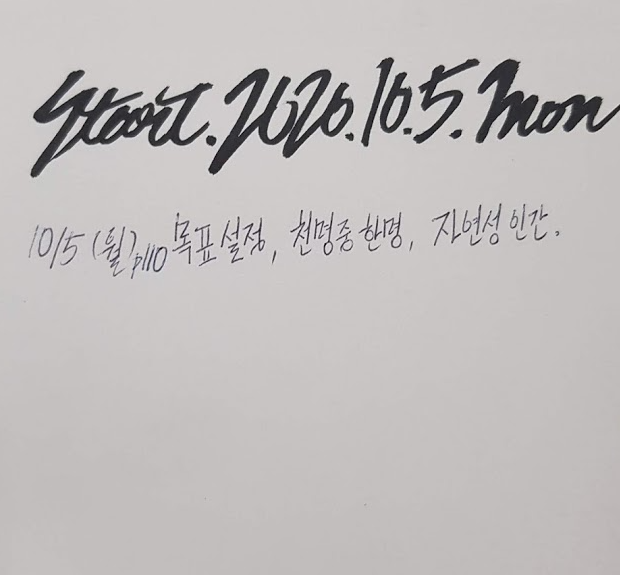 Start. 2020. 10. 5. Mon
10/5 (월) p110 목표설정, 천명중 한명, 자연성 인간.